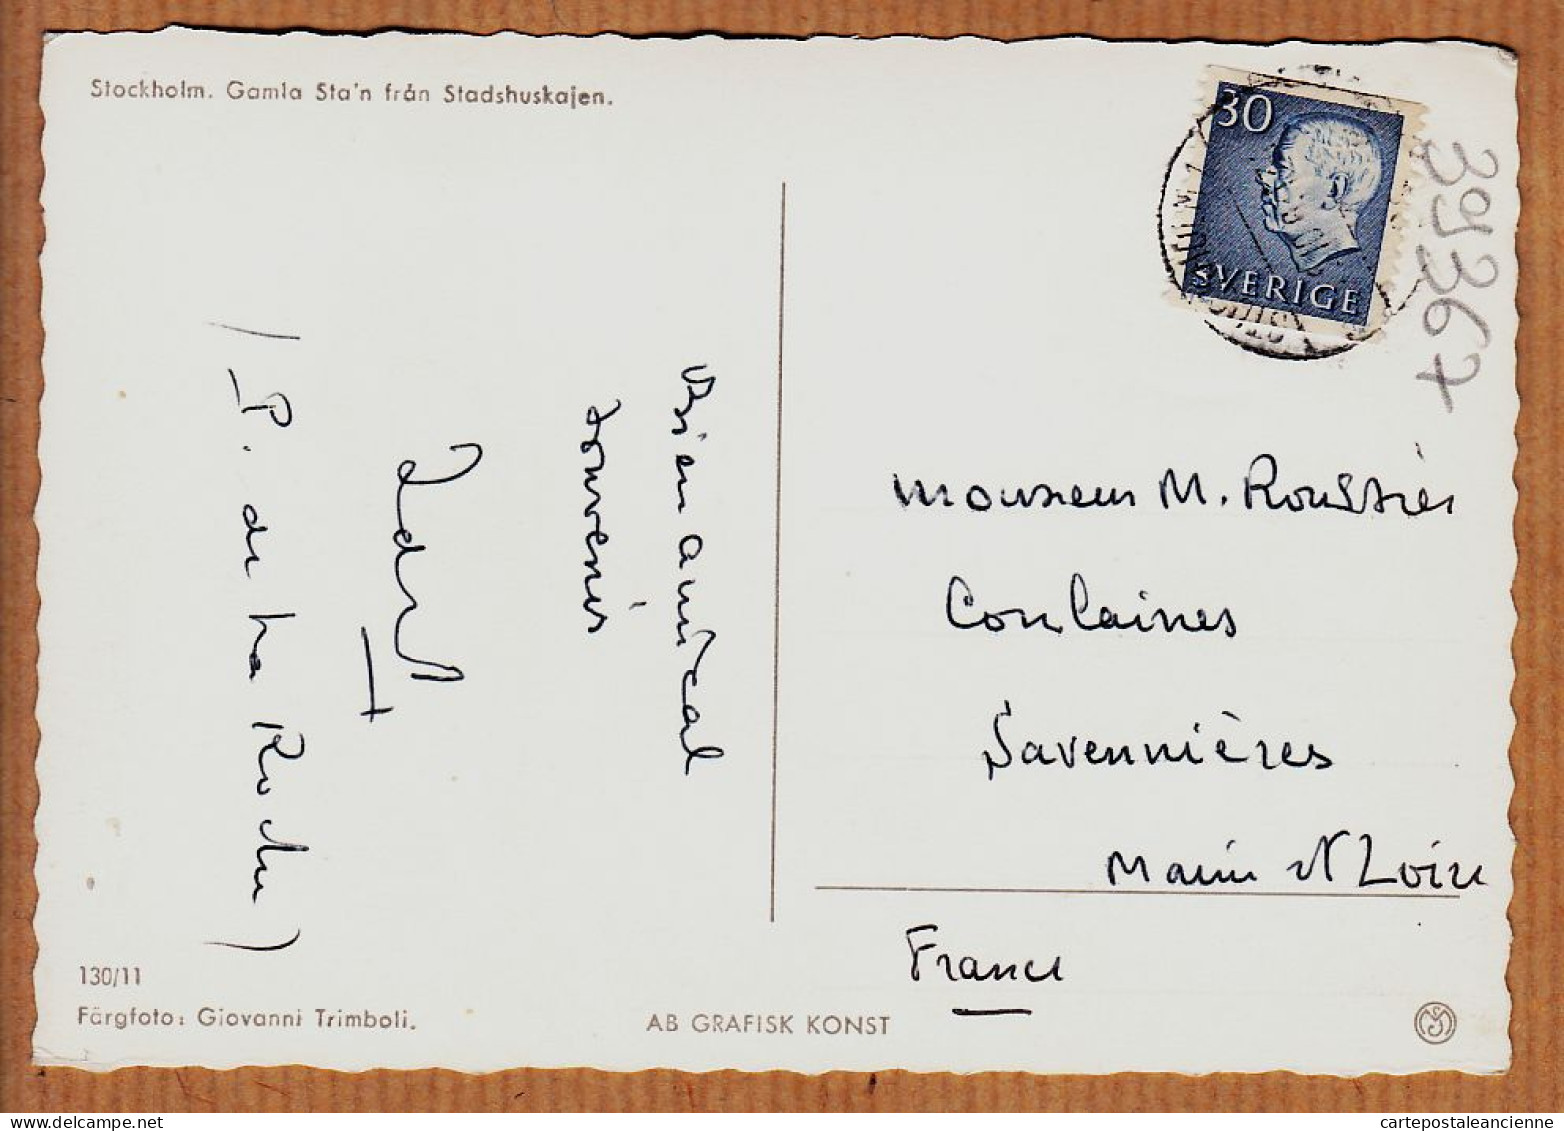 Stockholm. Gamla Sta'n från Stadshuskajen.
30
SVERIGE
39367
Bien amical
souvenir
(P. de La Roche)
Monsieur M. Roussier
Coulaines
Savennières
Maine et Loire
France
130/11
Färgfoto: Giovanni Trimboli.
AB GRAFISK KONST
cartepostaleancienne